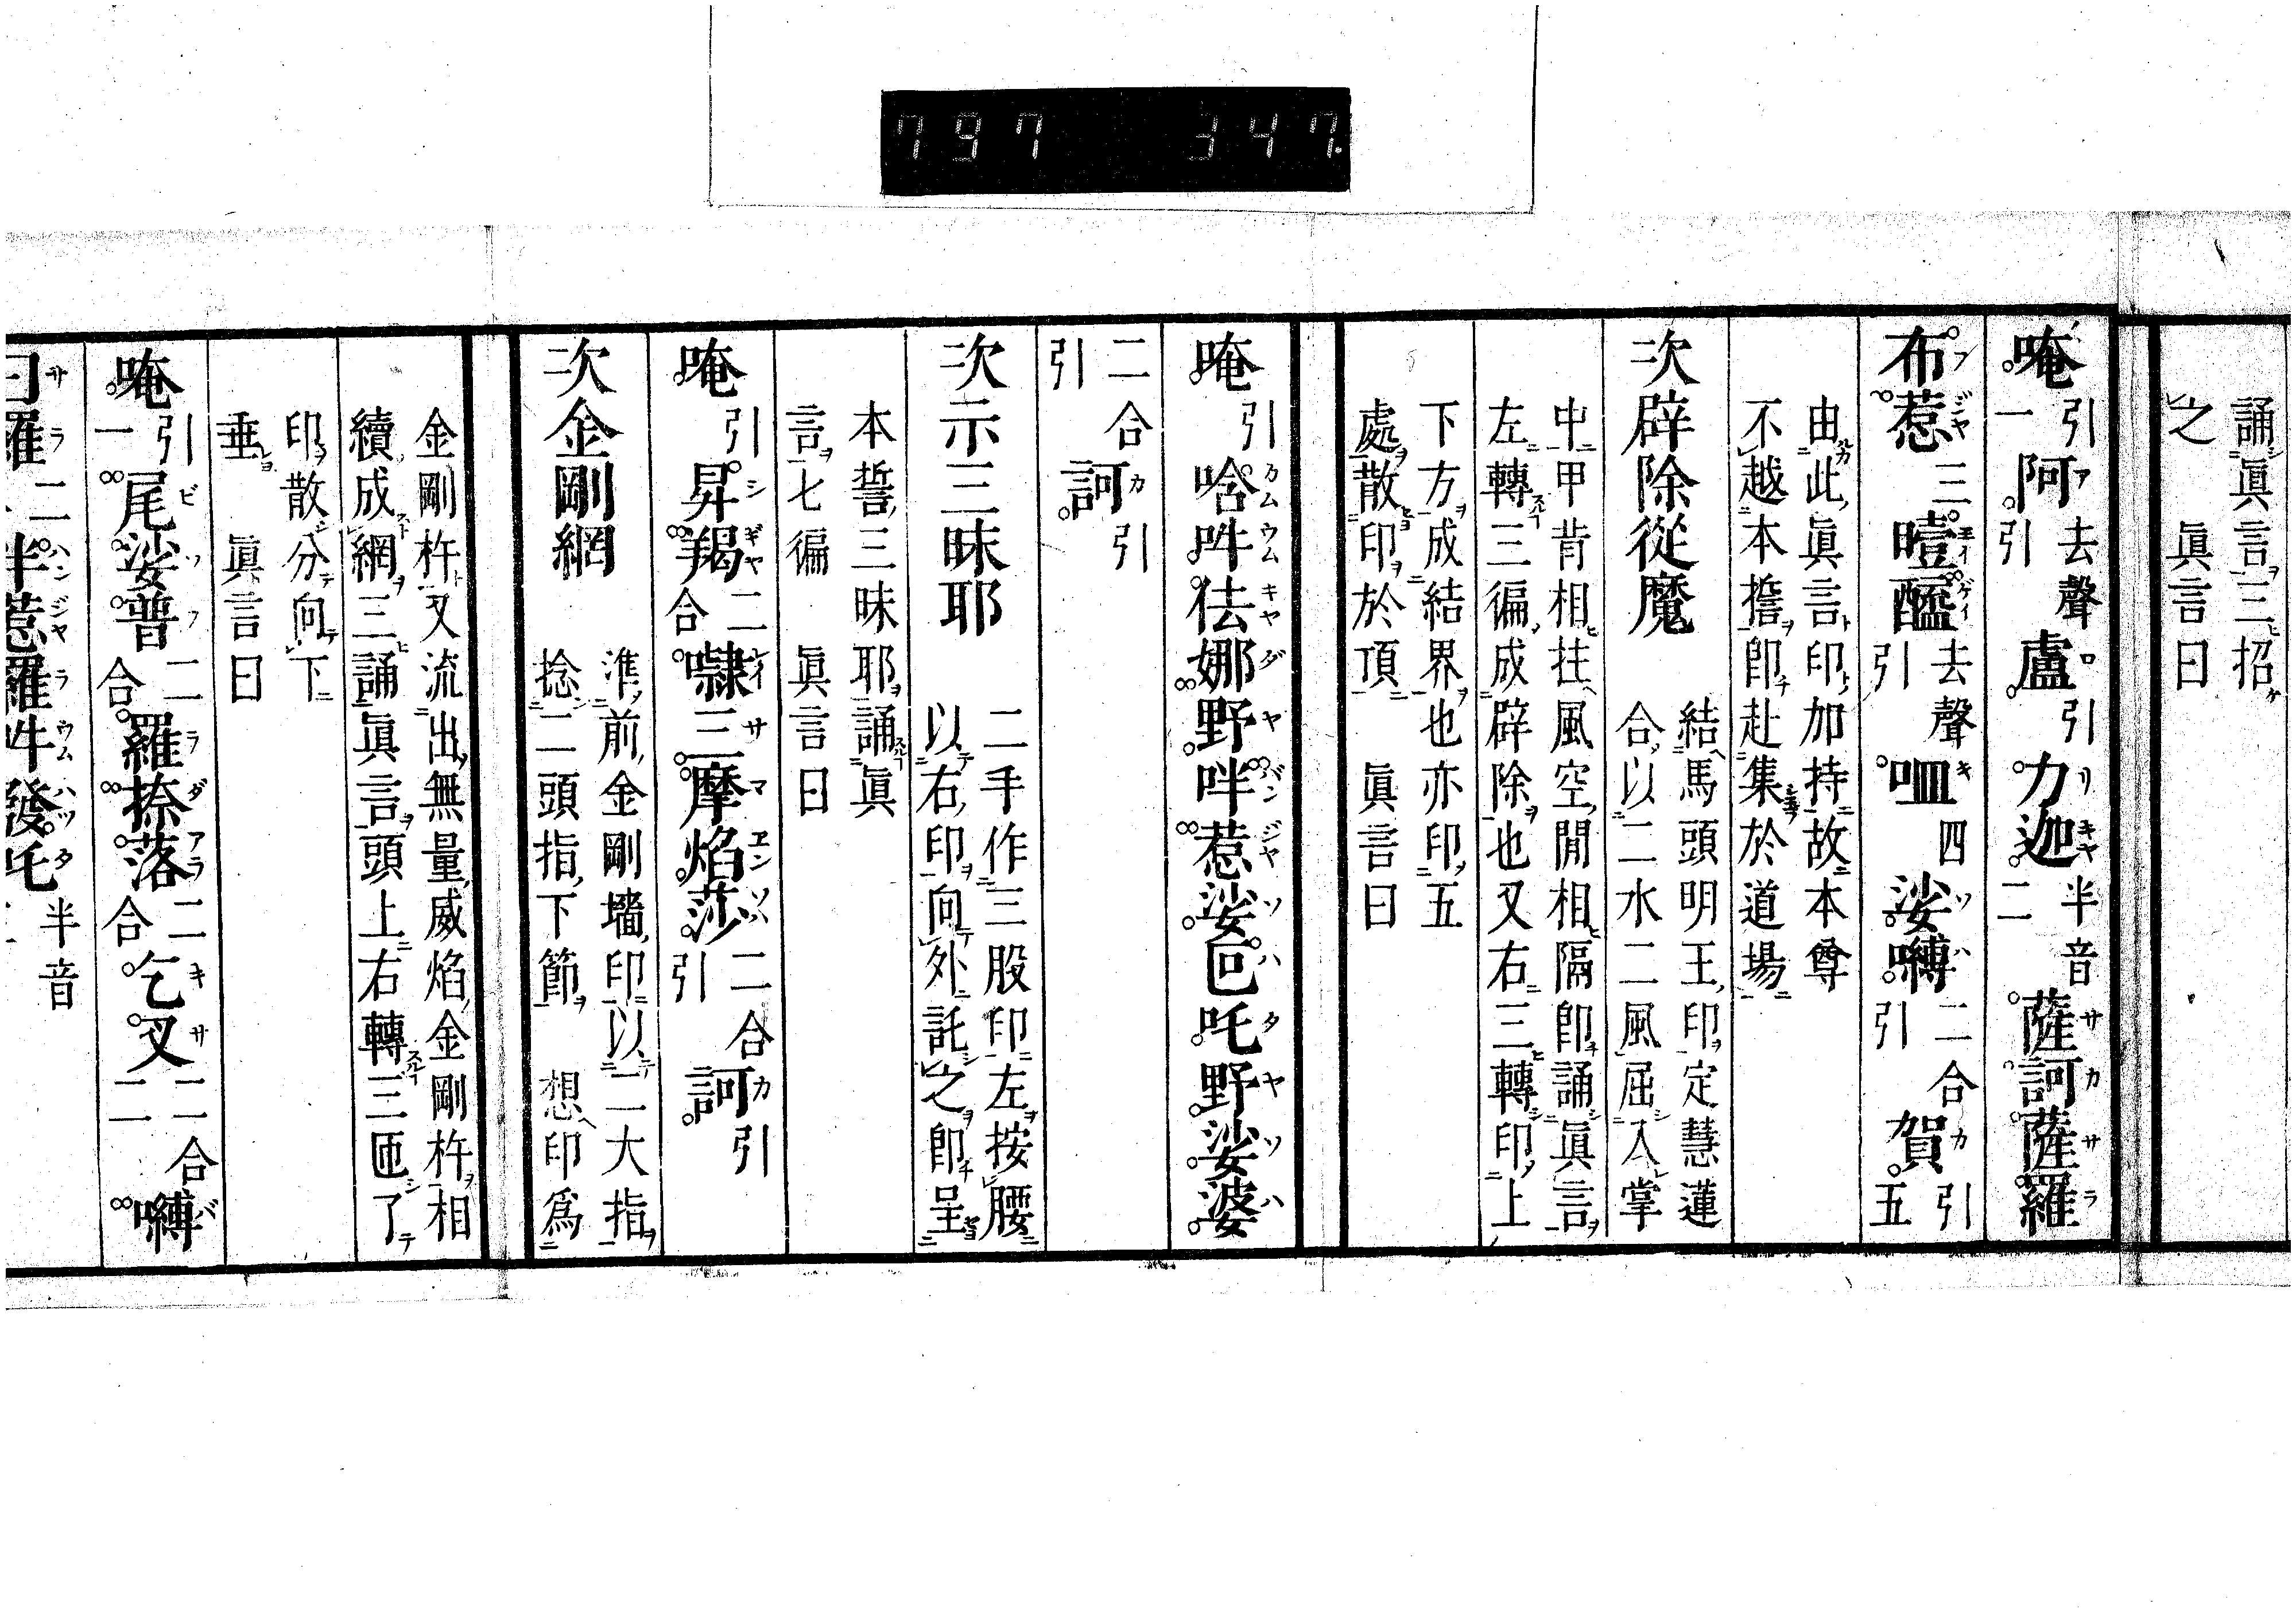 797 347.
誦眞言三招
之 眞言曰
唵引一阿去聲引盧引力迦半音二薩訶薩羅
布惹三曀醯去聲引呬四娑嚩二合引賀引五
由此眞言印加持故本尊
不越本誓即赴集於道場
次辟除從魔 結馬頭明王印定慧蓮
合以二水二風屈入掌
中甲背相拄風空閒相隔即誦眞言
左轉三徧成辟除也又右三轉印上
下方成結界也亦印五
處散印於頂 眞言曰
唵引唅吽佉娜野吽惹娑叵吒野娑婆
二合引訶引
次示三昧耶 二手作三股印左按腰
以右印向外託之即呈
本誓三昧耶誦眞
言七徧 眞言曰
唵引昇羯二合㘑三摩焰莎二合引訶引
次金剛網 準前金剛墻印以二大指
捻二頭指下節 想印爲
金剛杵又流出無量威焰金剛杵相
續成網三誦眞言頭上右轉三匝了
印散分向下
垂 眞言曰
唵引一尾娑普二合羅捺落二合乞叉二合二嚩
曰羅二半惹羅吽發吒半音